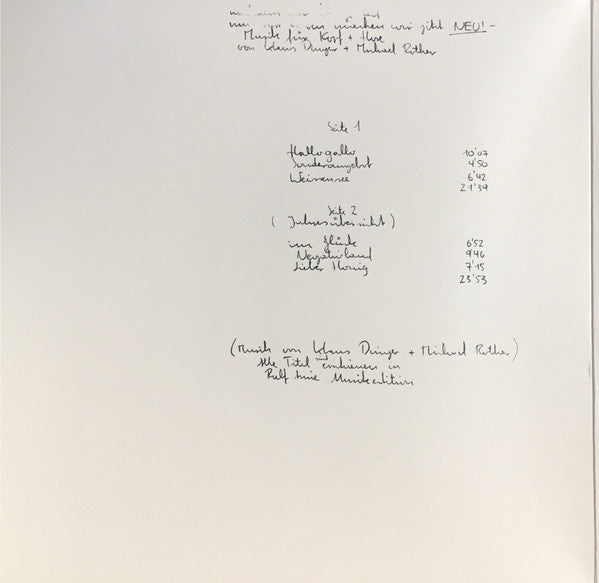 machen wir jetzt NEU! -
Musik für Kopf +
von Klaus Dinger + Michael Rother
Seite 1
Hallogallo 10'07
Sonderangebot 4'50
Weissensee 6'42
21'39
Seite 2
(Jahresübersicht)
im Glücke 6'52
Negativland 9'46
Lieber Honig 7'15
23'53
(Musik von Klaus Dinger + Michael Rother)
Alle Titel erschienen in
Ralf Musikedition